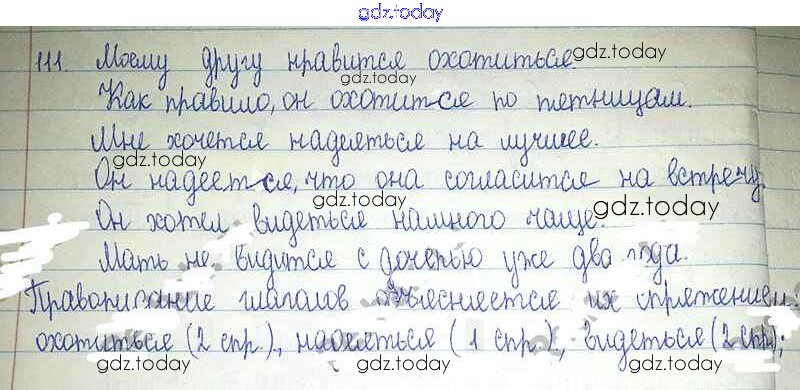 gdz.today
111. Моему другу нравится охотиться.
gdz.today
gdz.today
Как правило, он охотится по пятницам.
Мне хочется надеяться на лучшее.
gdz.today
Он надеется, что она согласится на встречу.
gdz.today
Он хотел видеться намного чаще.
Мать не видится с дочерью уже два года.
gdz.today
Правописание глаголов объясняется их спряжением:
охотиться (2 спр.), надеяться (1 спр.), видеться (2 спр.);
gdz.today
gdz.today